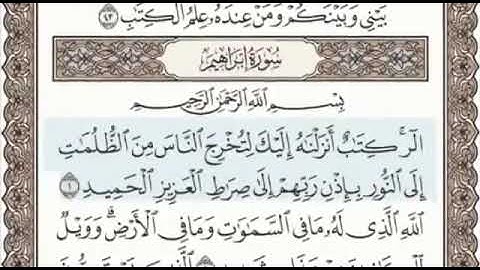 بَيْنِي وَبَيْنَكُمْ وَمَنْ عِندَهُۥ عِلْمُ ٱلْكِتَٰبِ ٤٣
سُورَةُ إِبْرَاهِيمَ
بِسْمِ ٱللَّهِ ٱلرَّحْمَٰنِ ٱلرَّحِيمِ
الٓر ۚ كِتَٰبٌ أَنزَلْنَٰهُ إِلَيْكَ لِتُخْرِجَ ٱلنَّاسَ مِنَ ٱلظُّلُمَٰتِ
إِلَى ٱلنُّورِ بِإِذْنِ رَبِّهِمْ إِلَىٰ صِرَٰطِ ٱلْعَزِيزِ ٱلْحَمِيدِ ١
ٱللَّهِ ٱلَّذِى لَهُۥ مَا فِى ٱلسَّمَٰوَٰتِ وَمَا فِى ٱلْأَرْضِ ۗ وَوَيْلٌ